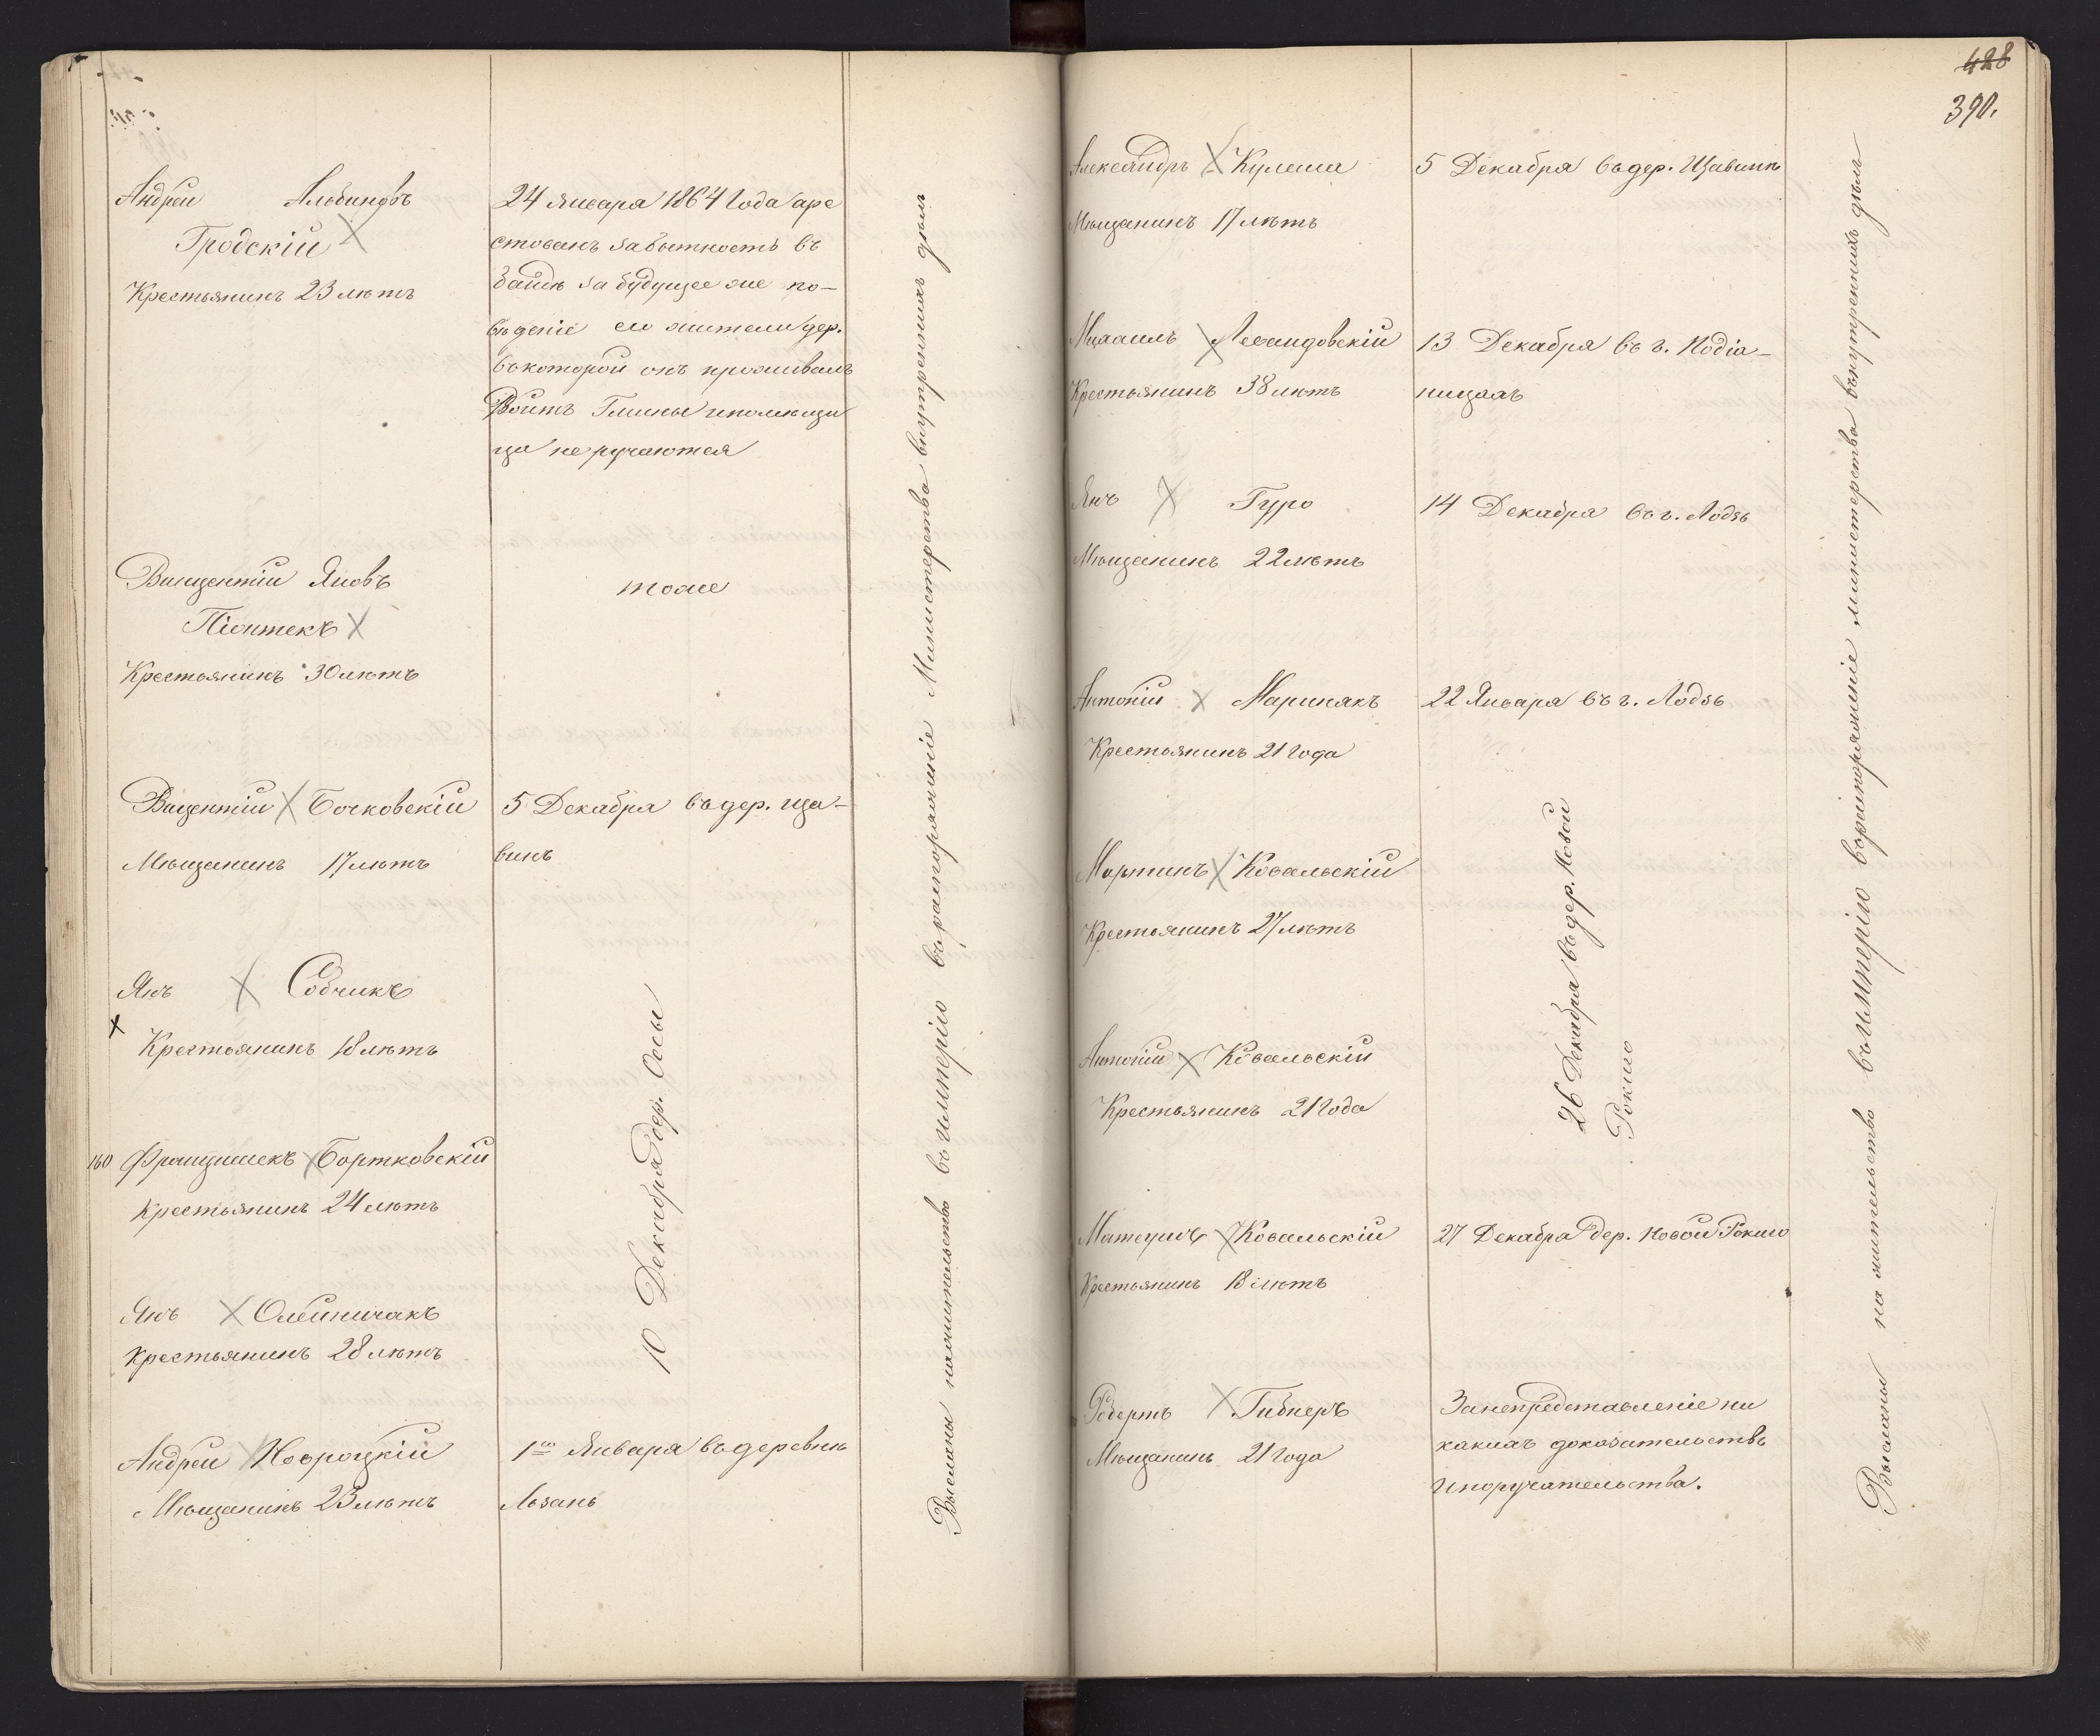 Андрей Альбиновъ
Гродскій
Крестьянинъ 23 лѣтъ
24 Января 1864 Года аре
стованъ за бытность въ
бандѣ за будущее же по–
вѣденіе его жители дер.
въ которой онъ проживалъ
Войтъ Гмины и помѣщи
ца не ручаются
Винцентій Яновъ
Піонтекъ
Крестьянинъ 30 лѣтъ
тоже
Вицентій Бочковскій
Мѣщанинъ 17 лѣтъ
5 Декабря въ дер. Ща–
винъ
Янъ Собчикъ
Крестьянинъ 18 лѣтъ
160 Францишекъ Бортковскій
Крестьянинъ 24 лѣтъ
Янъ Олейничакъ
Крестьянинъ 28 лѣтъ
10 Декабря дер. Осы
Андрей Новроцкій
Мѣщанинъ 23 лѣтъ
1го Января въ деревнѣ
Лѣзань
Высланы на жительство въ Имперію въ распоряженіе Министерства внутреннихъ дѣлъ
428
390.
Александръ Кулеша
Мѣщанинъ 17 лѣтъ
5 Декабря въ дер. Щавинѣ
Михаилъ Левандовскій
Крестьянинъ 38 лѣтъ
13 Декабря въ г. Подіа–
ницахъ
Янъ Гуро
Мѣщанинъ 22 лѣтъ
14 Декабря въ г. Лодзь
Антоній Маринякъ
Крестьянинъ 21 Года
22 Января въ г. Лодзь
Мартинъ Ковальскій
Крестьянинъ 27 лѣтъ
Антоній Ковальскій
Крестьянинъ 21 Года
26 Декабря въ дер. Новой
Рокицо
Матеушъ Ковальскій
Крестьянинъ 18 лѣтъ
27 Декабря дер. Новой Рокицо
Робертъ Гибнеръ
Мѣщанинъ 21 Года
За непредставленіе ни
какихъ доказательствъ
и поручательства.
Высланы на жительство въ Имперію въ распоряженіе министерства внутреннихъ дѣлъ